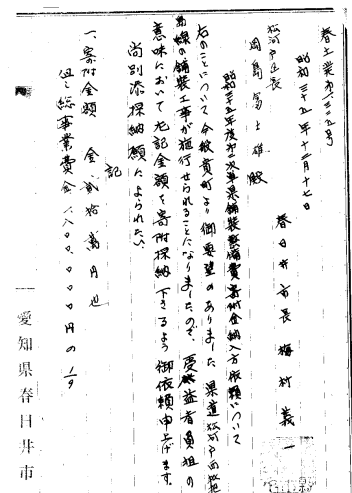 春土業第一三九号
昭和三十五年十二月十七日
春日井市長 梅村義一
松河戸区長
岡島冨士雄殿
昭和三十五年度第二次県舗装整備費寄附金納入方依頼について
右のことについて今般貴町より御要望のありました県道松河戸
線の舗装工事が施行せられることになりましたので、受益者負担の
意味において左記金額を寄附採納下さるよう御依頼申上げます。
尚別添採納願によられたい
記
一、寄附金額 金弐拾萬円也
但し総事業費金一、八〇〇、〇〇〇円の1/9
愛知県春日井市